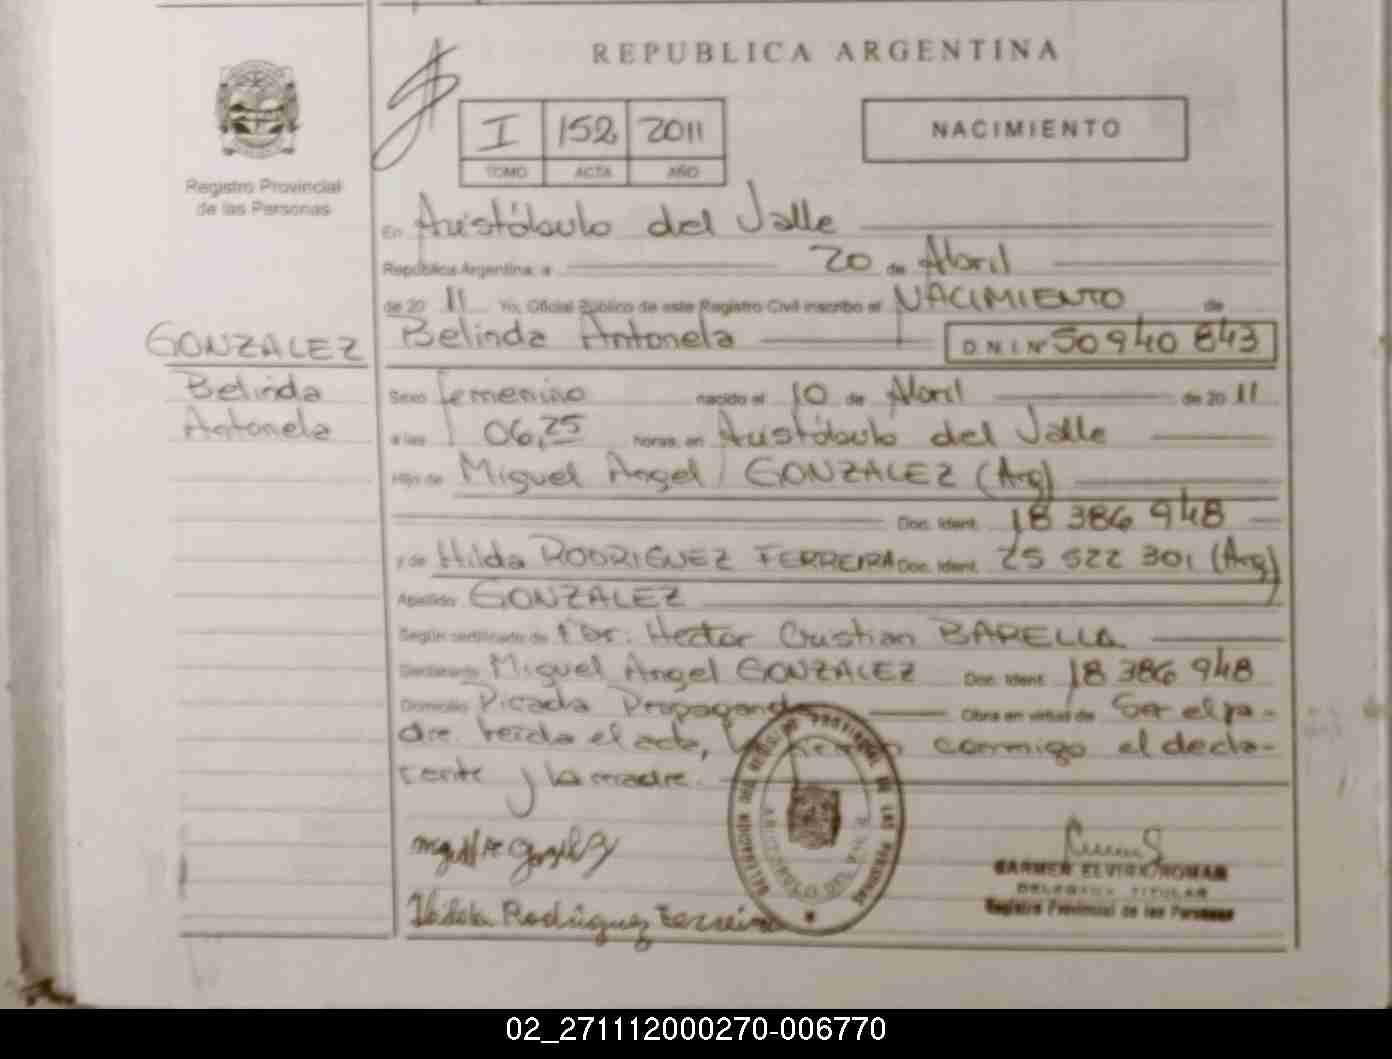 REPUBLICA ARGENTINA
I 152 2011
TOMO ACTA AÑO
NACIMIENTO
Registro Provincial
de las Personas
En Aristóbulo del Valle
República Argentina a 20 de Abril
de 20 11 Yo, Oficial Público de este Registro Civil inscribo el NACIMIENTO de
GONZALEZ
Belinda
Antonela
Belinda Antonela D.N.I. Nº 50 940 843
Sexo femenino nacido el 10 de Abril de 20 11
a las 06,25 horas en Aristóbulo del Valle
Hijo de Miguel Angel GONZALEZ (Arg)
Doc. Ident. 18 386 948
y de Hilda RODRIGUEZ FERREIRA Doc. Ident. 25 522 301 (Arg)
Apellido GONZALEZ
Según certificado de Dr. Hector Cristian BARELLA
Declarante Miguel Angel GONZALEZ Doc. Ident. 18 386 948
Domicilio Picada Propaganda Obra en virtud de Ser el pa-
dre. leída el acta, conmigo el decla-
rante y la madre.
Hilda Rodriguez Ferreira
CARMEN ELVIRA ROMAN
DELEGADA TITULAR
Registro Provincial de las Personas
02_271112000270-006770